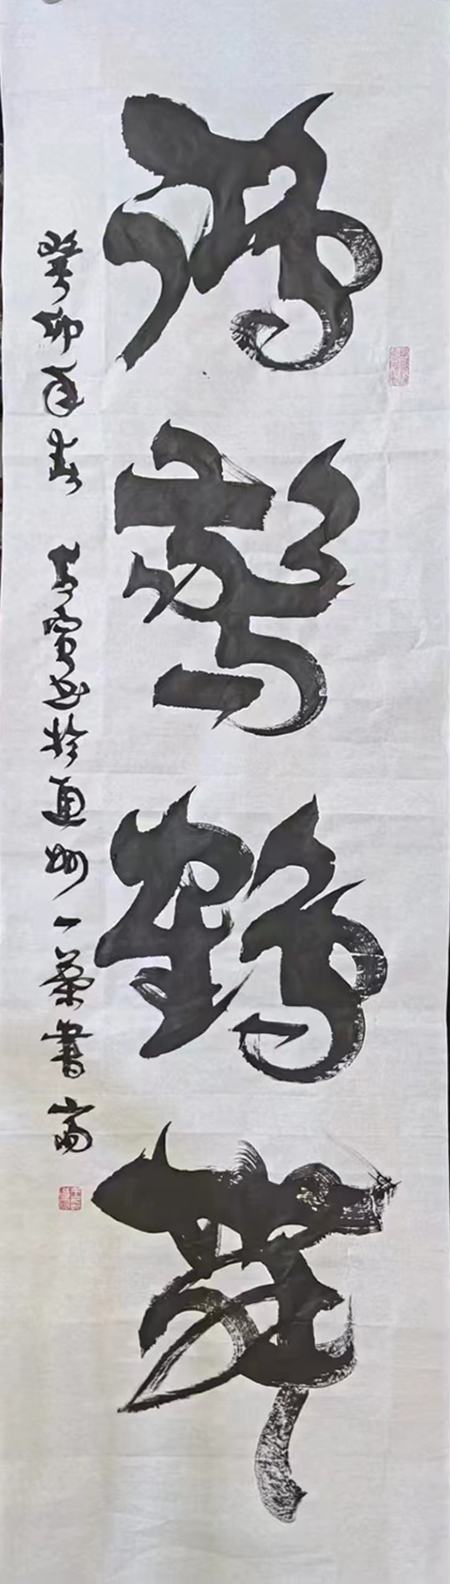 鸿惊鹤舞
癸卯年春 书于通州一叶书斋